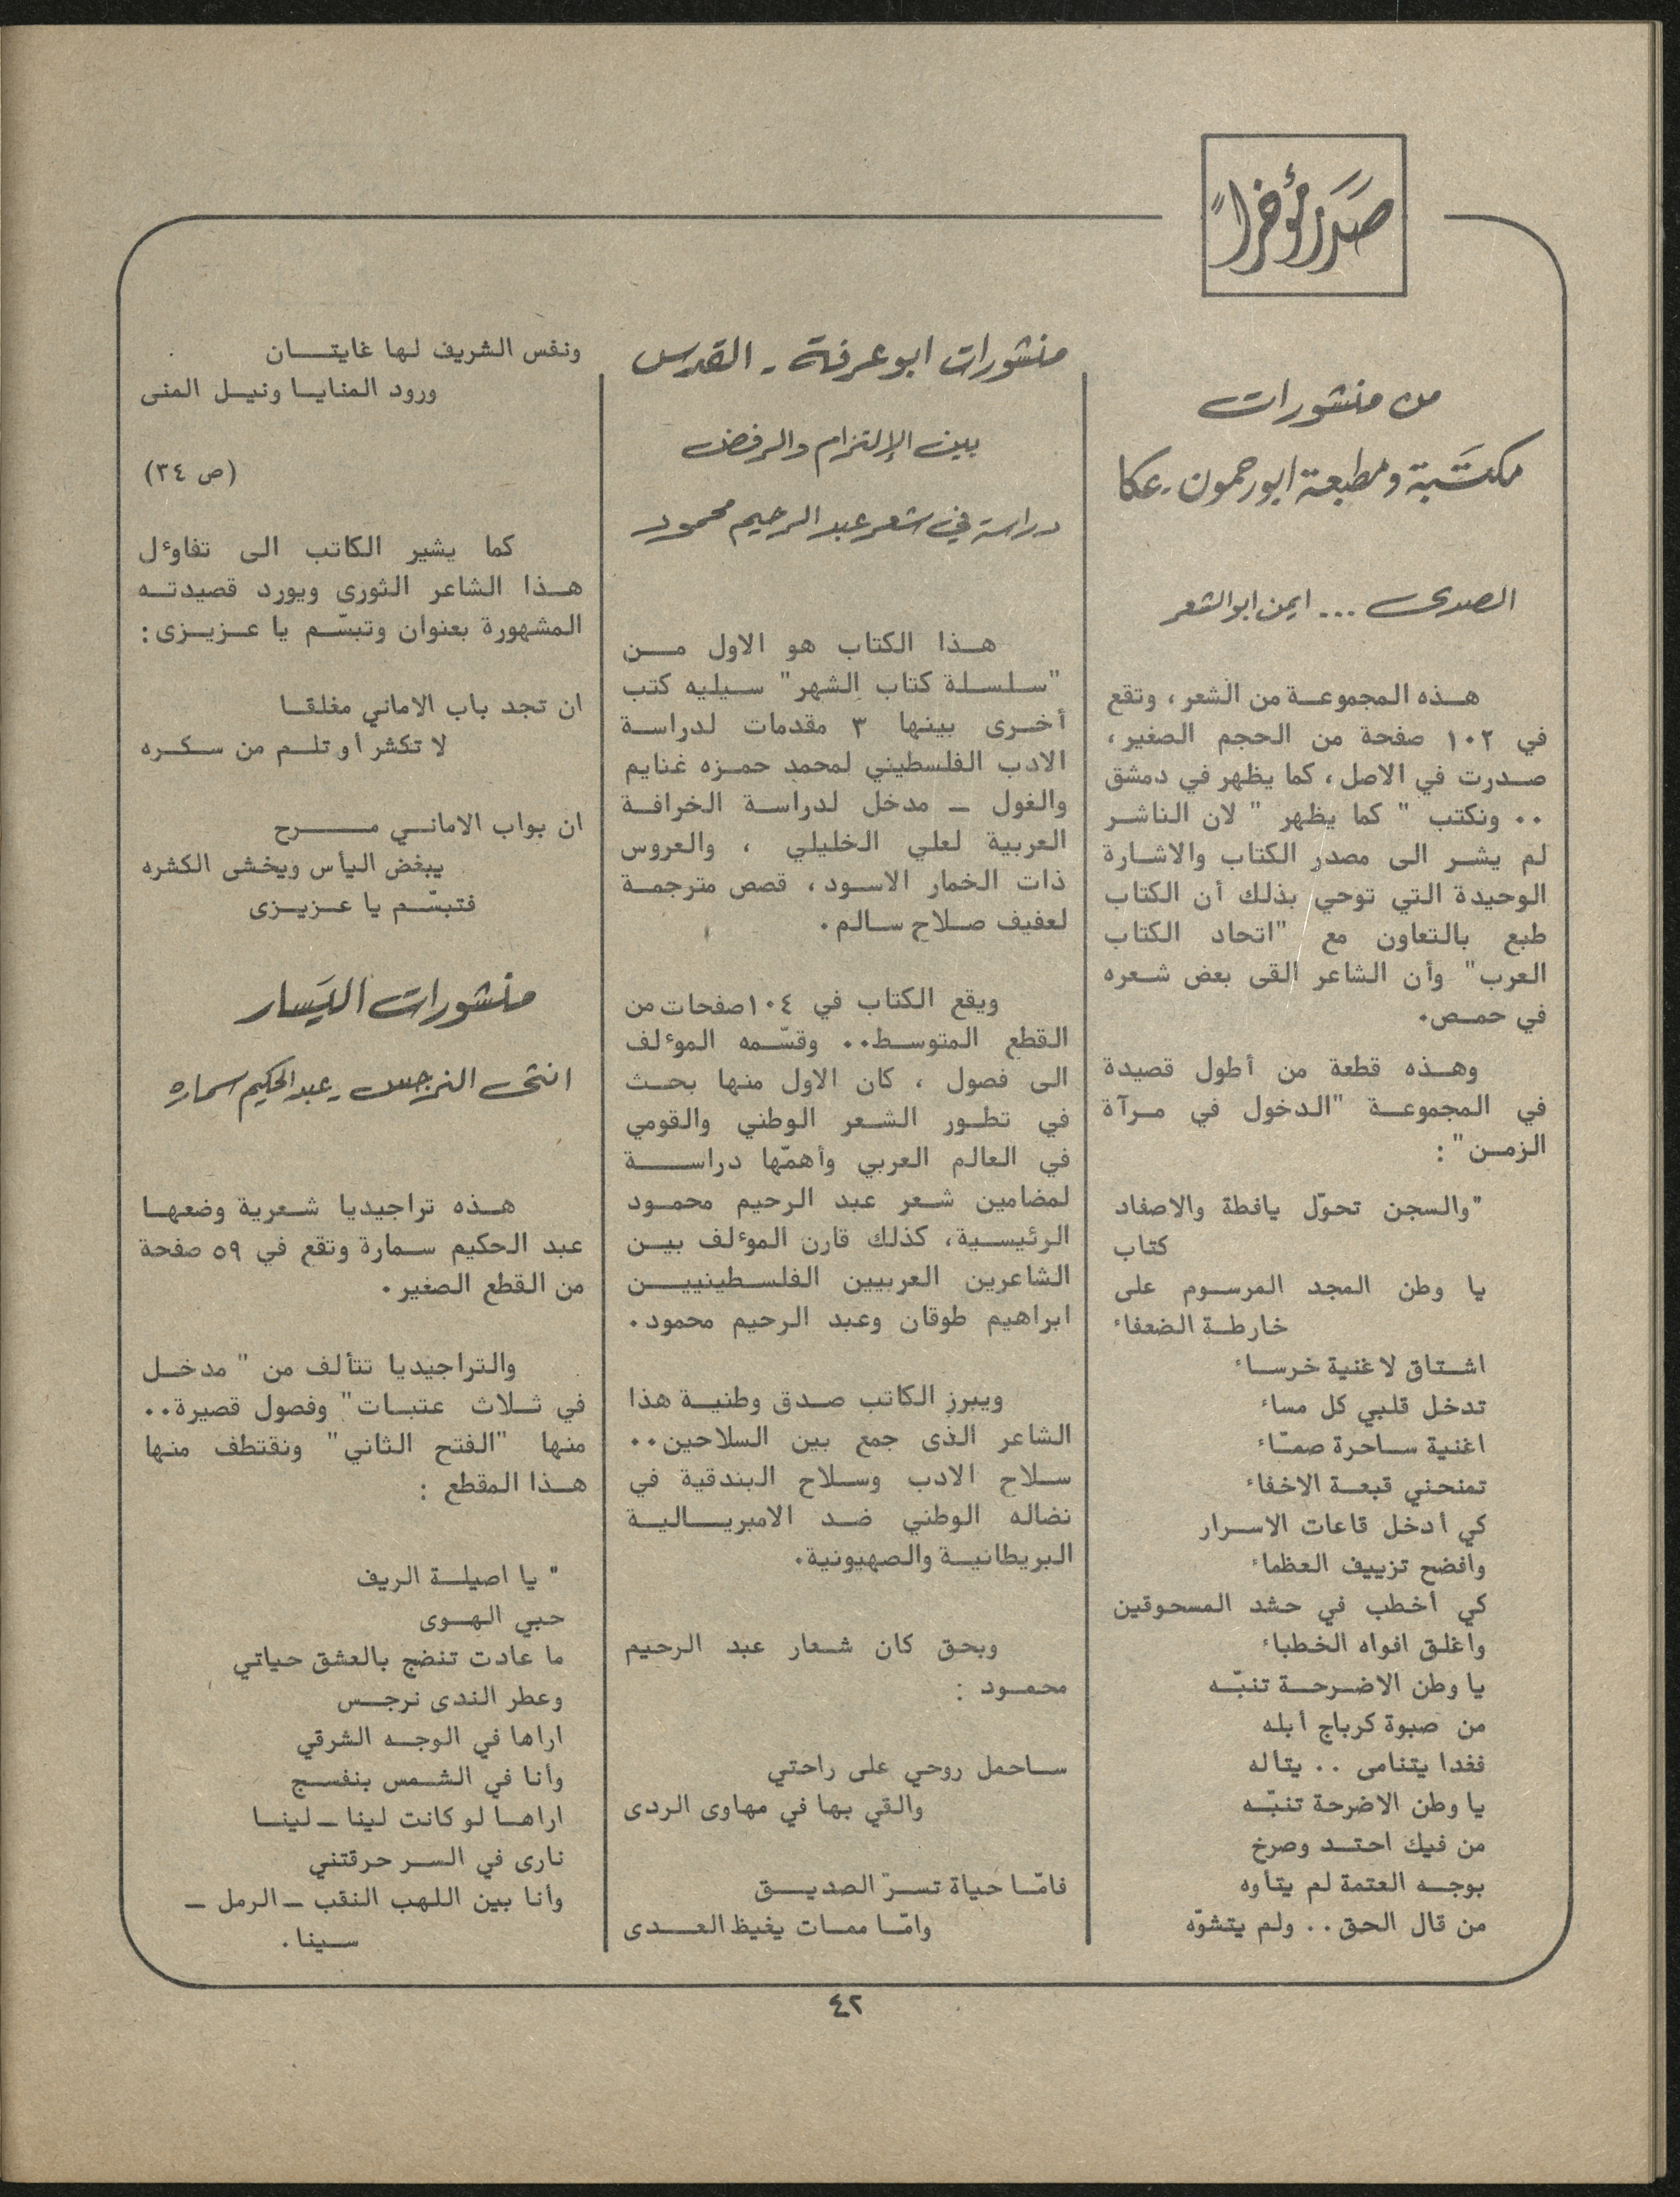 صَدَر مؤخراً
من منشورات
مكتَبة ومطبعة ابو رحمون - عكا
الصدى ... ايمن ابو الشعر
هذه المجموعة من الشعر، وتقع
في ١٠٢ صفحة من الحجم الصغير،
صدرت في الاصل، كما يظهر في دمشق
.. ونكتب " كما يظهر " لان الناشر
لم يشر الى مصدر الكتاب والاشارة
الوحيدة التي توحي بذلك أن الكتاب
طبع بالتعاون مع "اتحاد الكتاب
العرب" وأن الشاعر القى بعض شعره
في حمص.
وهذه قطعة من أطول قصيدة
في المجموعة "الدخول في مرآة
الزمن" :
"والسجن تحوّل يافطة والاصفاد
كتاب
يا وطن المجد المرسوم على
خارطة الضعفاء
اشتاق لاغنية خرساء
تدخل قلبي كل مساء
اغنية ساحرة صمّاء
تمنحني قبعة الاخفاء
كي أدخل قاعات الاسرار
وافضح تزييف العظماء
كي أخطب في حشد المسحوقين
واغلق افواه الخطباء
يا وطن الاضرحة تنبّه
من صبوة كرباج أبله
فغدا يتنامى .. يتاله
يا وطن الاضرحة تنبّه
من فيك احتد وصرخ
بوجه العتمة لم يتأوه
من قال الحق .. ولم يتشوّه
منشورات ابو عرفة - القدس
بين الإلتزام والرفض
دراسة في شعر عبد الرحيم محمود
هذا الكتاب هو الاول من
"سلسلة كتاب الشهر" سيليه كتب
أخرى بينها ٣ مقدمات لدراسة
الادب الفلسطيني لمحمد حمزه غنايم
والغول - مدخل لدراسة الخرافة
العربية لعلي الخليلي ، والعروس
ذات الخمار الاسود، قصص مترجمة
لعفيف صلاح سالم.
ويقع الكتاب في ١٠٤ صفحات من
القطع المتوسط.. وقسّمه الموءلف
الى فصول ، كان الاول منها بحث
في تطور الشعر الوطني والقومي
في العالم العربي وأهمّها دراسة
لمضامين شعر عبد الرحيم محمود
الرئيسية، كذلك قارن الموءلف بين
الشاعرين العربيين الفلسطينيين
ابراهيم طوقان وعبد الرحيم محمود.
ويبرز الكاتب صدق وطنية هذا
الشاعر الذى جمع بين السلاحين..
سلاح الادب وسلاح البندقية في
نضاله الوطني ضد الامبريالية
البريطانية والصهيونية.
وبحق كان شعار عبد الرحيم
محمود :
ساحمل روحي على راحتي
والقي بها في مهاوى الردى
فامّا حياة تسرّ الصديق
وامّا ممات يغيظ العدى
ونفس الشريف لها غايتان
ورود المنايا ونيل المنى
(ص ٣٤)
كما يشير الكاتب الى تفاوءل
هذا الشاعر الثورى ويورد قصيدته
المشهورة بعنوان وتبسّم يا عزيزى:
ان تجد باب الاماني مغلقا
لا تكشر أو تلم من سكره
ان بواب الاماني مرح
يبغض اليأس ويخشى الكشره
فتبسّم يا عزيزى
منشورات اليَسار
انثى النرجس - عبد الحكيم سماره
هذه تراجيديا شعرية وضعها
عبد الحكيم سمارة وتقع في ٥٩ صفحة
من القطع الصغير.
والتراجيديا تتألف من " مدخل
في ثلاث عتبات" وفصول قصيرة..
منها "الفتح الثاني" ونقتطف منها
هذا المقطع :
" يا اصيلة الريف
حبي الهوى
ما عادت تنضج بالعشق حياتي
وعطر الندى نرجس
اراها في الوجه الشرقي
وأنا في الشمس بنفسج
اراها لو كانت لينا - لينا
نارى في السر حرقتني
وأنا بين اللهب النقب - الرمل -
سينا.
٤٢